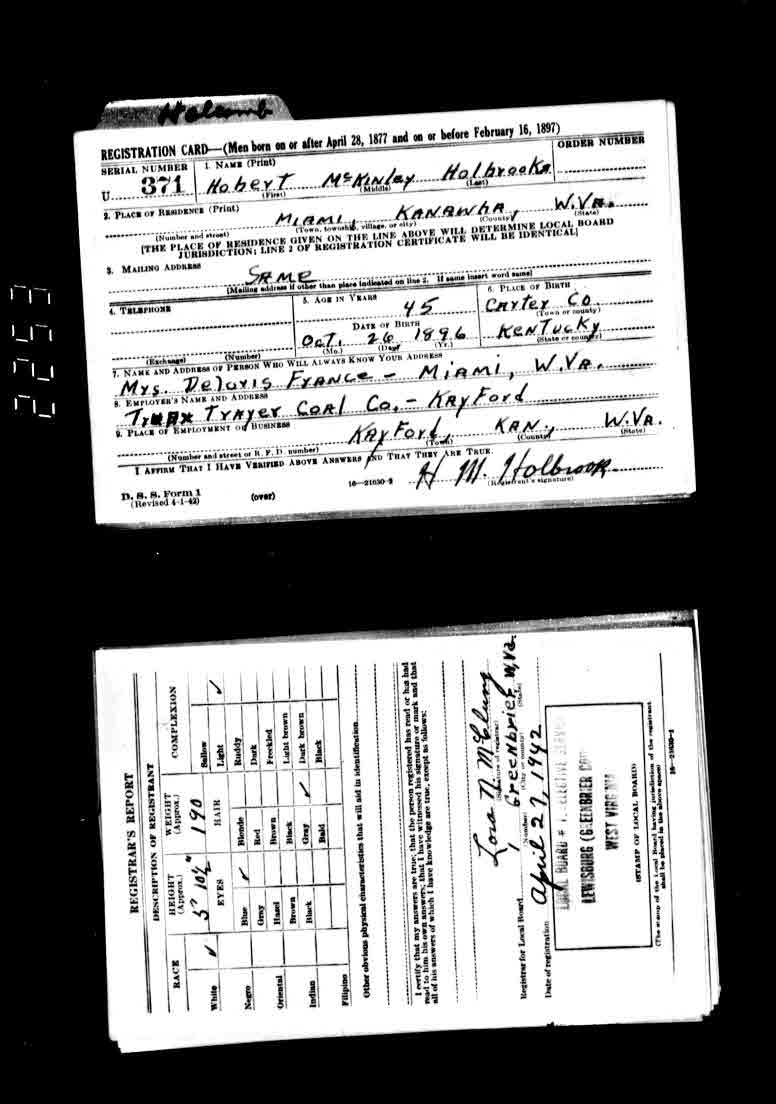 Holcomb
REGISTRATION CARD—(Men born on or after April 28, 1877 and on or before February 16, 1897)
SERIAL NUMBER
1. NAME (Print)
ORDER NUMBER
U 371
Hobert McKinley Holbrooks
(First) (Middle) (Last)
2. PLACE OF RESIDENCE (Print)
MIAMI, KANAWHA, W.VA.
(Number and street) (Town, township, village, or city) (County) (State)
[THE PLACE OF RESIDENCE GIVEN ON THE LINE ABOVE WILL DETERMINE LOCAL BOARD
JURISDICTION; LINE 2 OF REGISTRATION CERTIFICATE WILL BE IDENTICAL]
3. MAILING ADDRESS
SAME
[Mailing address if other than place indicated on line 2. If same insert word same]
4. TELEPHONE
5. AGE IN YEARS
6. PLACE OF BIRTH
45
Carter Co
(Town or county)
DATE OF BIRTH
Oct. 26 1896
KENTUCKY
(Exchange) (Number)
(Mo.) (Day) (Yr.)
(State or country)
7. NAME AND ADDRESS OF PERSON WHO WILL ALWAYS KNOW YOUR ADDRESS
Mrs. Deloris France - MIAMI, W.VA.
8. EMPLOYER'S NAME AND ADDRESS
Trayer COAL Co. - KAYFord
9. PLACE OF EMPLOYMENT OR BUSINESS
KAYFord, KAN., W.VA.
(Number and street or R. F. D. number) (Town) (County) (State)
I AFFIRM THAT I HAVE VERIFIED ABOVE ANSWERS AND THAT THEY ARE TRUE.
H M. Holbrook
D. S. S. Form 1
(Revised 4-1-42)
(over)
16—21630-2
(Registrant's signature)
2253
REGISTRAR'S REPORT
DESCRIPTION OF REGISTRANT
RACE
HEIGHT
(Approx.)
WEIGHT
(Approx.)
COMPLEXION
5' 10½"
190
Sallow
White ✓
EYES
HAIR
Light ✓
Blue ✓
Blonde
Ruddy
Negro
Gray
Red
Dark
Hazel
Brown
Freckled
Oriental
Brown
Black
Light brown
Black
Gray ✓
Dark brown
Indian
Bald
Black
Filipino
Other obvious physical characteristics that will aid in identification
I certify that my answers are true; that the person registered has read or has had
read to him his own answers; that I have witnessed his signature or mark and that
all of his answers of which I have knowledge are true, except as follows:
Lora N. McClung
(Signature of registrar)
Registrar for Local Board
1 Greenbrier W.Va.
(Number) (City or county) (State)
Date of registration
April 27, 1942
LOCAL BOARD # 1. SELECTIVE SERVICE
LEWISBURG (GREENBRIER CO.)
WEST VIRGINIA
(STAMP OF LOCAL BOARD)
(The stamp of the Local Board having jurisdiction of the registrant
shall be placed in the above space)
16—21630-1